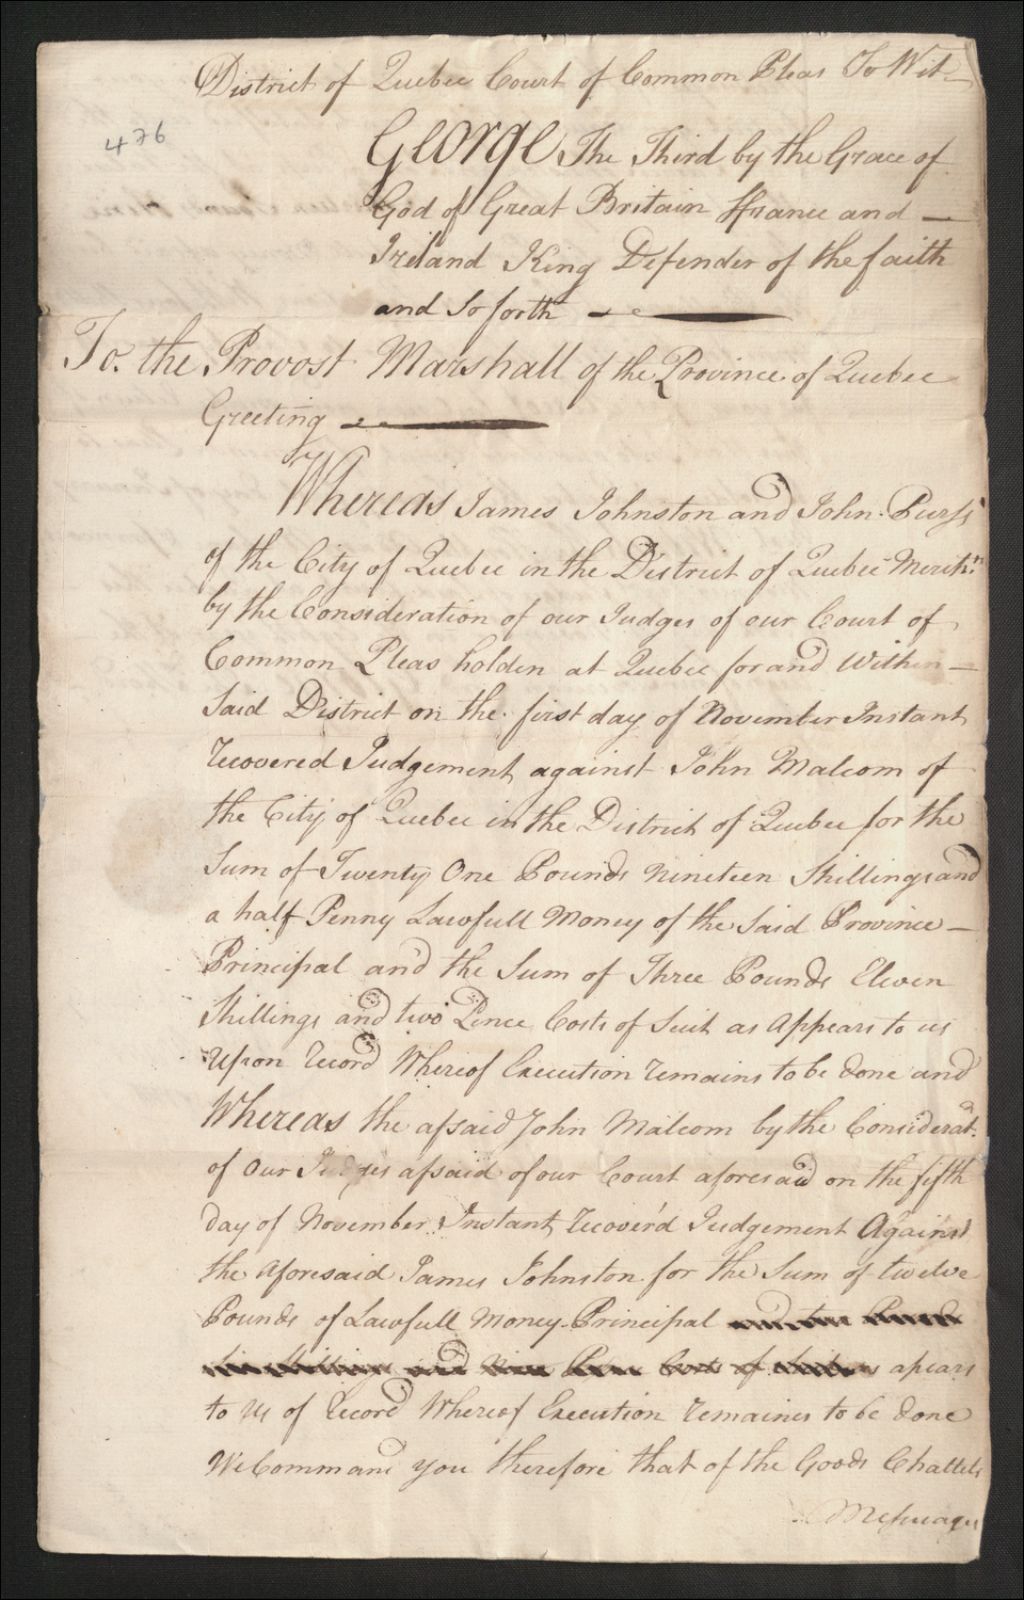 District of Quebec Court of Common Pleas To Wit
476
George The Third by the Grace of
God of Great Britain ffrance and
Ireland King Defender of the faith
and So forth
To. the Provost Marshall of the Province of Quebec
Greeting
Whereas James Johnston and John Purss
of the City of Quebec in the District of Quebec
by the Consideration of our Judges of our Court of
Common Pleas holden at Quebec for and Within
Said District on the first day of November Instant
recovered Judgement against John Malcom of
the City of Quebec in the District of Quebec for the
Sum of Twenty One Pounds Nineteen Shillings and
a half Penny Lawfull Money of the Said Province
Principal and the Sum of Three Pounds Eleven
Shillings and two Pence Costs of Suit as Appears to us
Upon record Whereof Execution remains to be done and
Whereas the afsaid John Malcom by the Considerat:
of Our Judges afsaid of our Court aforesaid on the fifth
day of November Instant recover'd Judgement Against
the Aforesaid James Johnston for the Sum of twelve
Pounds of Lawfull Money Principal
apears
to us of record Whereof Execution remaines to be done
We Command you therefore that of the Goods Chattels
Messuages